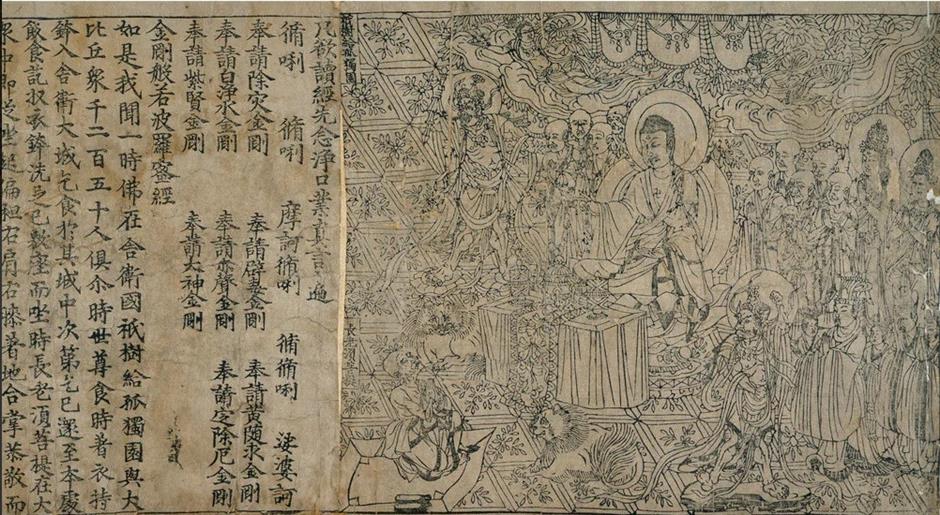 祇樹給孤獨園
長老須菩提
凡欲讀經先念淨口業真言一遍
脩唎 脩唎 摩訶脩唎 脩脩唎 娑婆訶
奉請除灾金剛 奉請辟毒金剛 奉請黃随求金剛
奉請白淨水金剛 奉請赤聲金剛 奉請定除厄金剛
奉請紫賢金剛 奉請大神金剛
金剛般若波羅蜜經
如是我聞一時佛在舍衛國祇樹給孤獨園與大
比丘衆千二百五十人俱尒時世尊食時著衣持
鉢入舍衛大城乞食於其城中次第乞已還至本處
飯食訖收衣鉢洗足已敷座而坐時長老湏菩提在大
衆中即從坐起偏袒右肩右膝著地合掌恭敬而